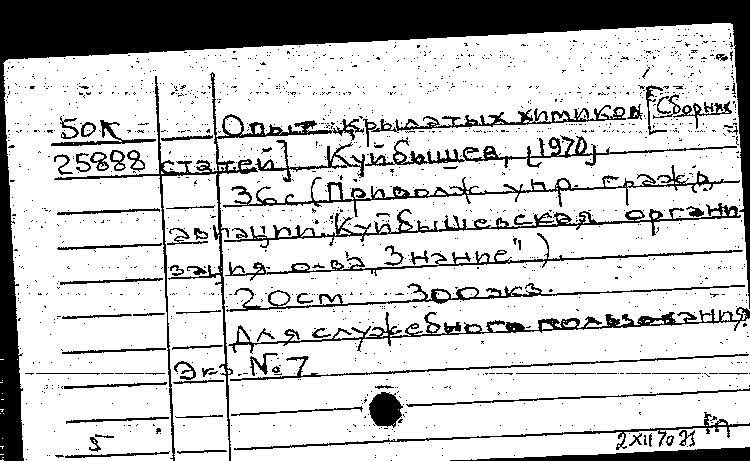 50к Опыт крылатых химиков [Сборник
25888 статей] Куйбышев, [1970].
36с (Приволж. упр. гражд.
авиации. Куйбышевская органи
зация о-ва „Знание").
20см 300экз.
Для служебного пользования
Экз. № 7.